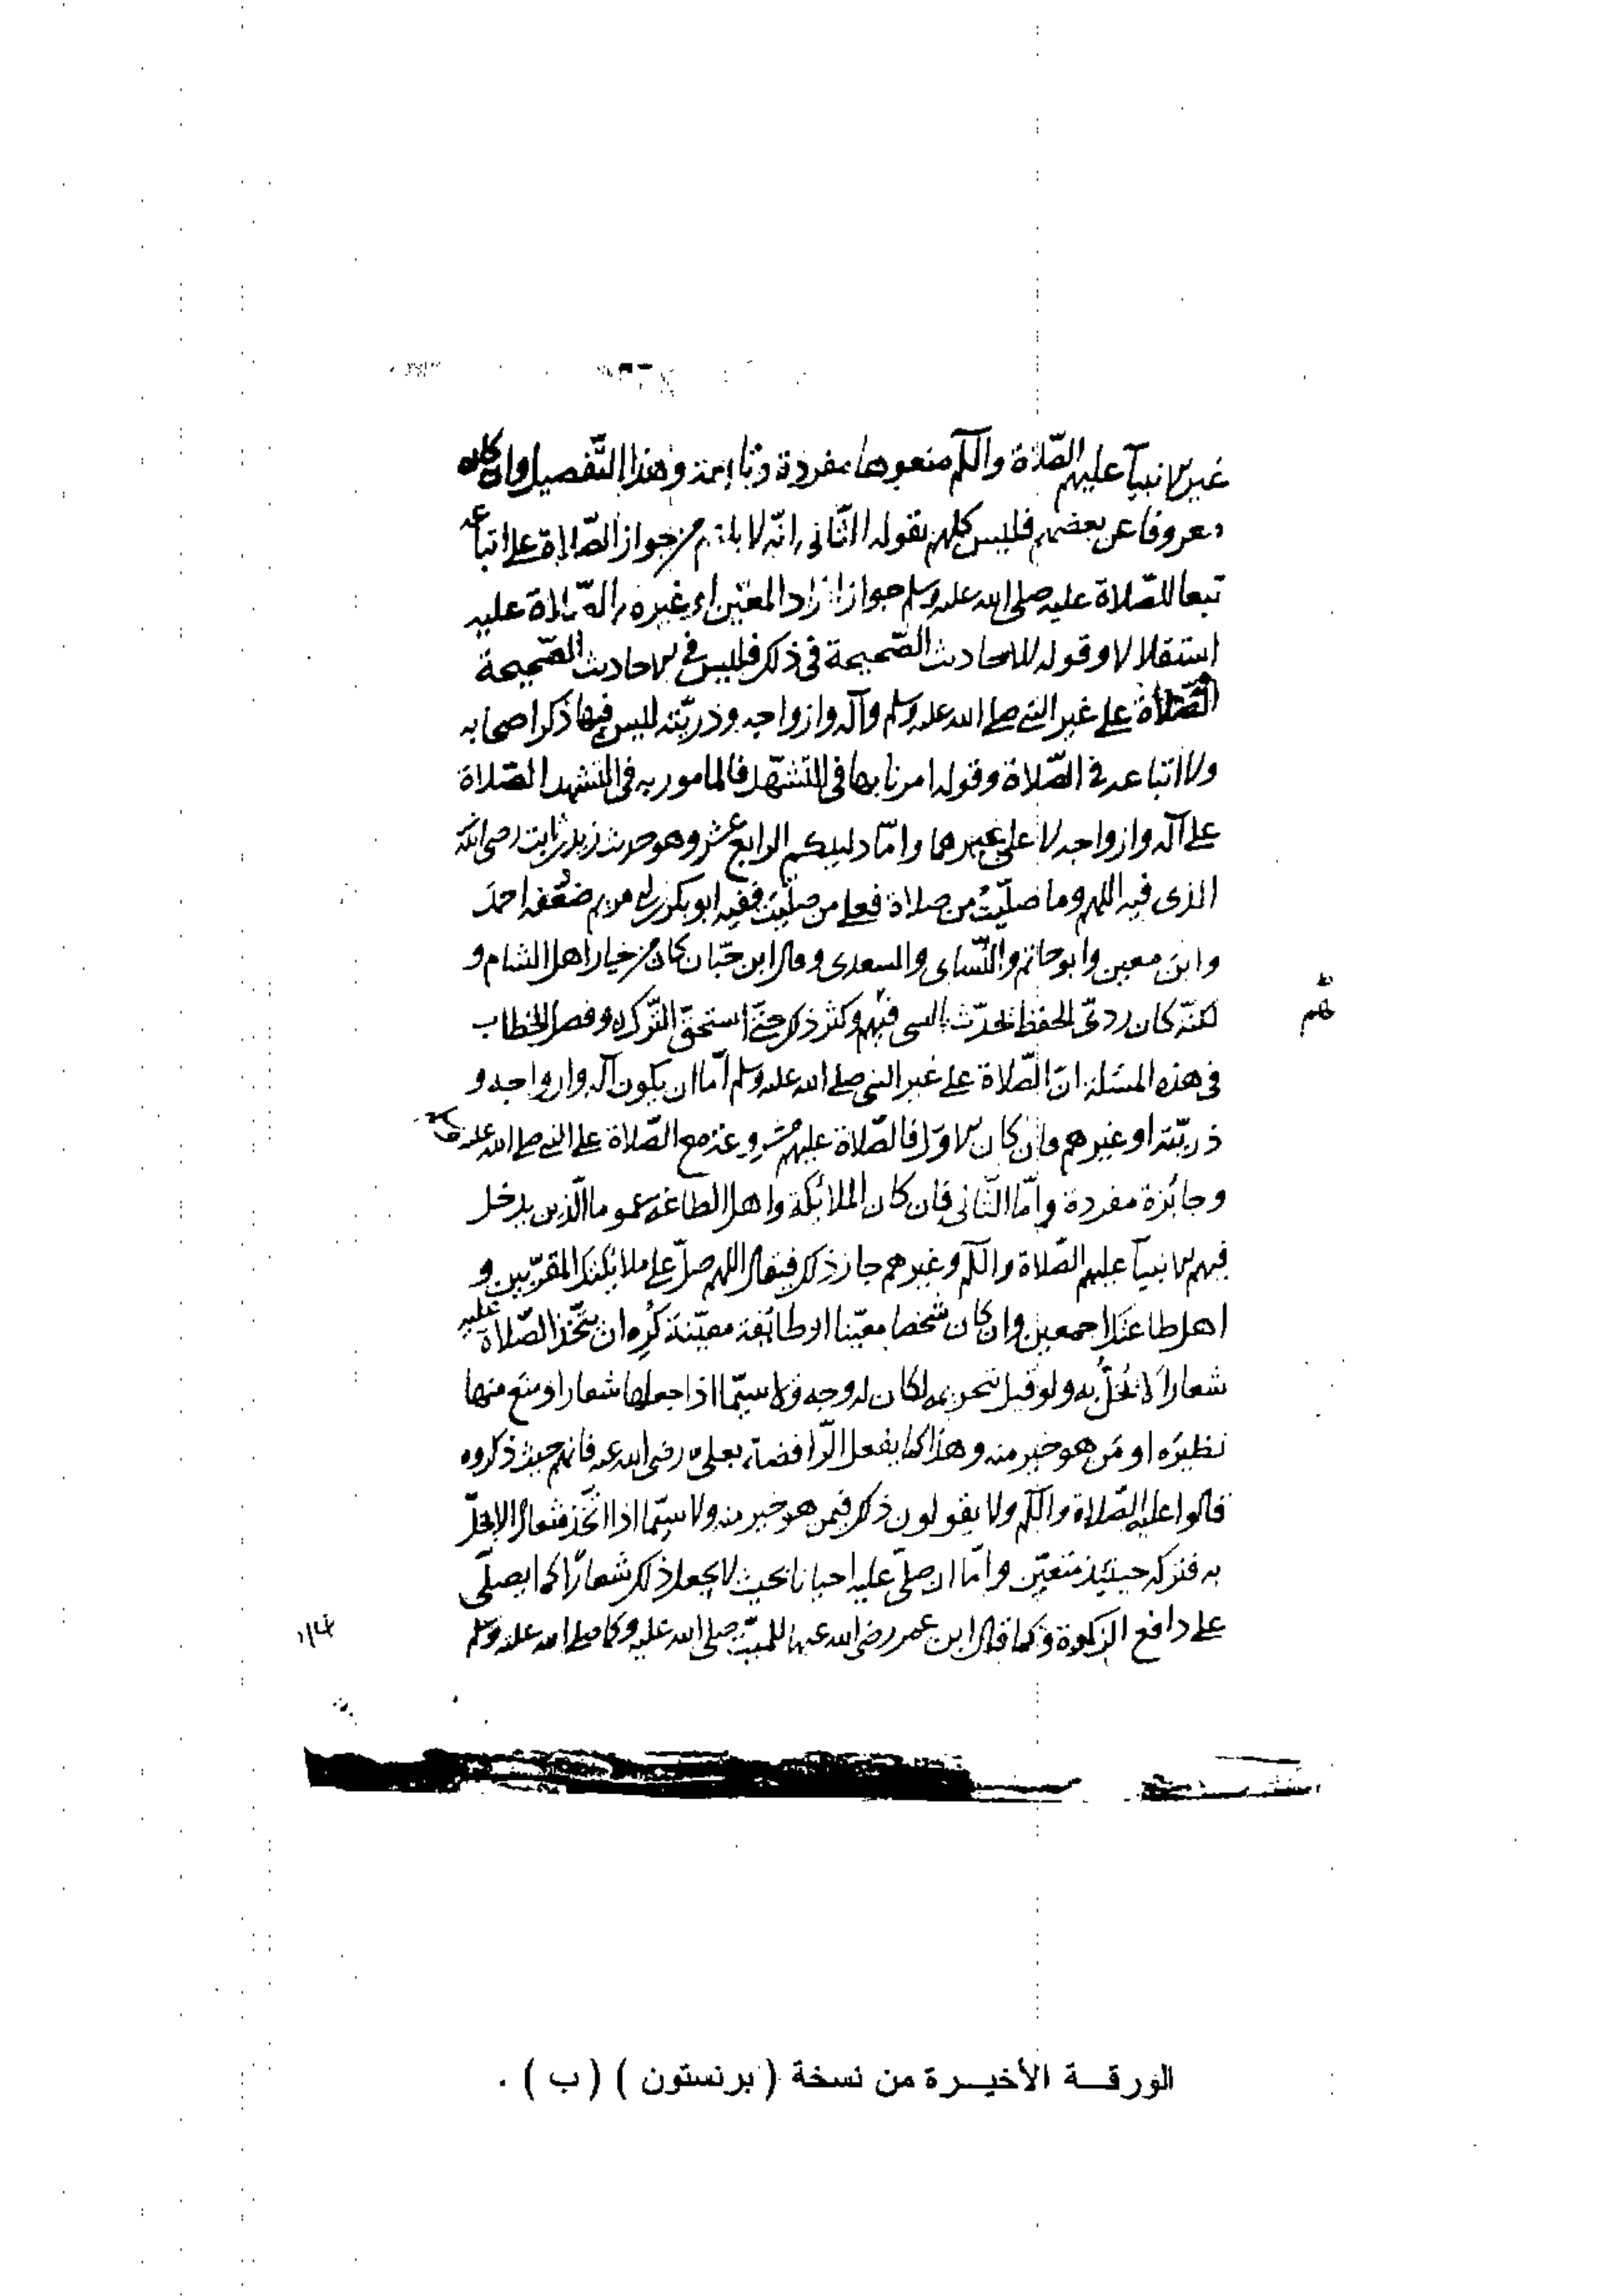 غير الانبيآ عليهم الصّلاة والسّلام منعوها مفردة وتابعة وهذا التّفصيل وان كان
معروفا عن بعضهم فليس كلهم يقوله الثّاني انّه لا يلزم من جواز الصّلاة على اتباعه
تبعا للصّلاة عليه صلى الله عليه وسلم جواز افراد المعيّن او غيره بالصّلاة عليه
استقلالا وقوله للاحاديث الصّحيحة فى ذلك فليس فى الاحاديث الصّحيحة
الصّلاة على غير النبي صلى الله عليه وسلم وآله وازواجه وذريّته ليس فيها ذكر اصحابه
ولا اتباعه فى الصّلاة وقوله امرنا بها فى التّشهّد فالمامور به فى التّشهد الصّلاة
على آله وازواجه لا على غيرهما وامّا دليلكم الرابع عشر وهو حديث زيد بن ثابت رضي الله عنه
الذى فيه اللهم وما صلّيتُ من صلاة فعلى من صلّيت ففيه ابو بكر بن ابي مريم ضعّفه احمد
وابن معين وابو حاتم والنّساى والسعدى وقال ابن حبّان كان من خيار اهل الشام و
لكنّه كان ردىّ الحفظ يحدّث بالشي فيهم وكثر ذلك حتى استحقّ التّرك وفصل الخطاب
يهم
فى هذه المسئلة انّ الصّلاة على غير النبي صلى الله عليه وسلم امّا ان يكون آله وازواجه و
ذريّته او غيرهم فان كان الاوّل فالصّلاة عليهم مشروعة مع الصّلاة على النبي صلى الله عليه وسلم
وجائزة مفردة وامّا الثّانى فان كان الملائكة واهل الطاعة عموما الّذين يدخل
فيهم الانبيآ عليهم الصّلاة والسّلام وغيرهم جاز ذلك فيقال اللهم صلّ على ملائكتك المقرّبين و
اهل طاعتك اجمعين وان كان شخصا معيّنا او طائفة معيّنة كُره ان يتّخذ الصّلاة عليه
شعارا لا يُخلُّ به ولو قيل بتحريمه لكان له وجه ولا سيّما اذا جعلها شعارا ومنع منها
نظيره او مَن هو خير منه وهذا كما يفعل الرّافضة بعليّ رضى الله عنه فانهم حيث ذكروه
قالوا عليه الصّلاة والسّلام ولا يقولون ذلك فيمن هو خير منه ولا سيّما اذا اتّخذ شعارا لا يخلّ
به فتركه حينئذ متعيّن وامّا ان صلّى عليه احيانا بحيث لا يجعل ذلك شعارًا كما يصلّى
على دافع الزكوة وكما قال ابن عمر رضى الله عنهما للميّت صلى الله عليه وكما صلى الله عليه وسلم
الورقة الأخيرة من نسخة ( برنستون ) ( ب ) .